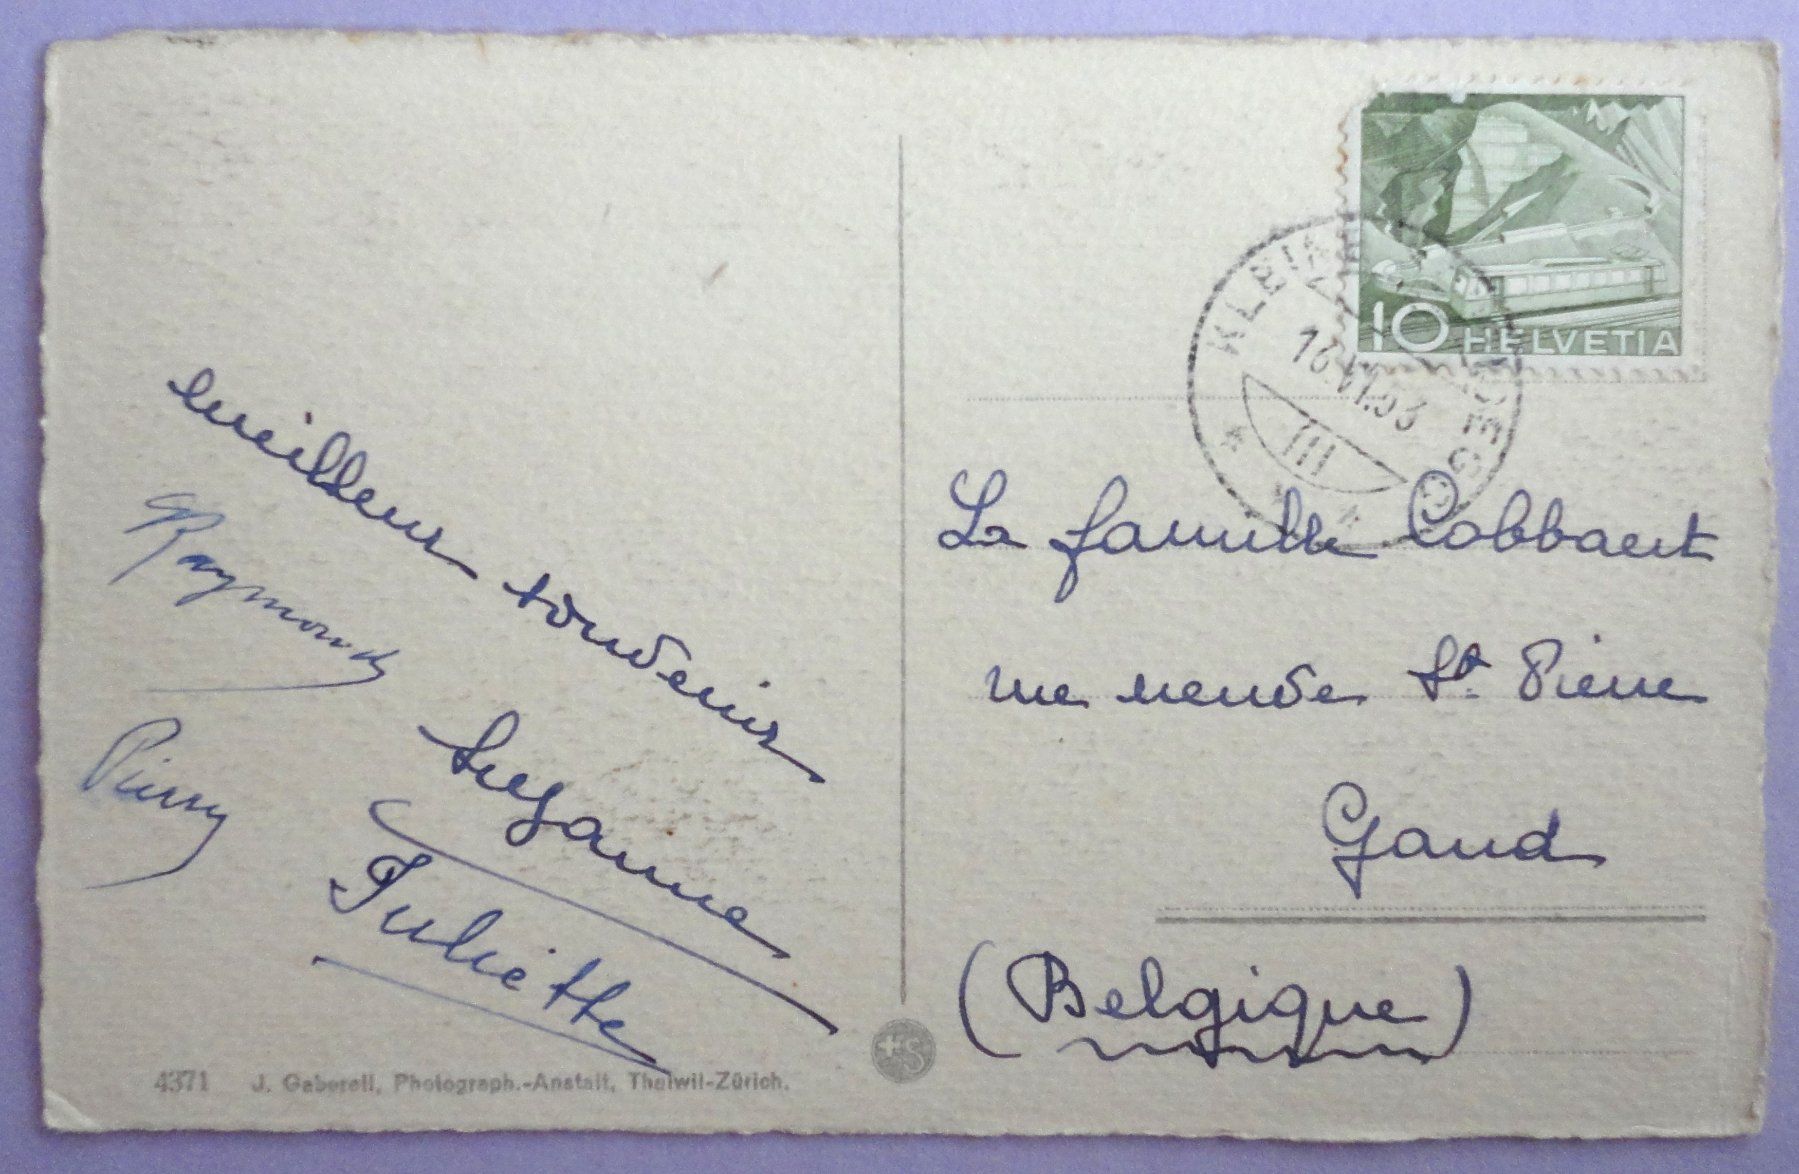 meilleurs souvenirs
Raymonde
Pierre
Suzanne
Juliette
4371 J. Gaberell, Photograph.-Anstalt, Thalwil-Zürich.
+S
10 HELVETIA
16.VI.53
III
La famille Cobbaert
rue neuve St. Pierre
Gand
(Belgique)